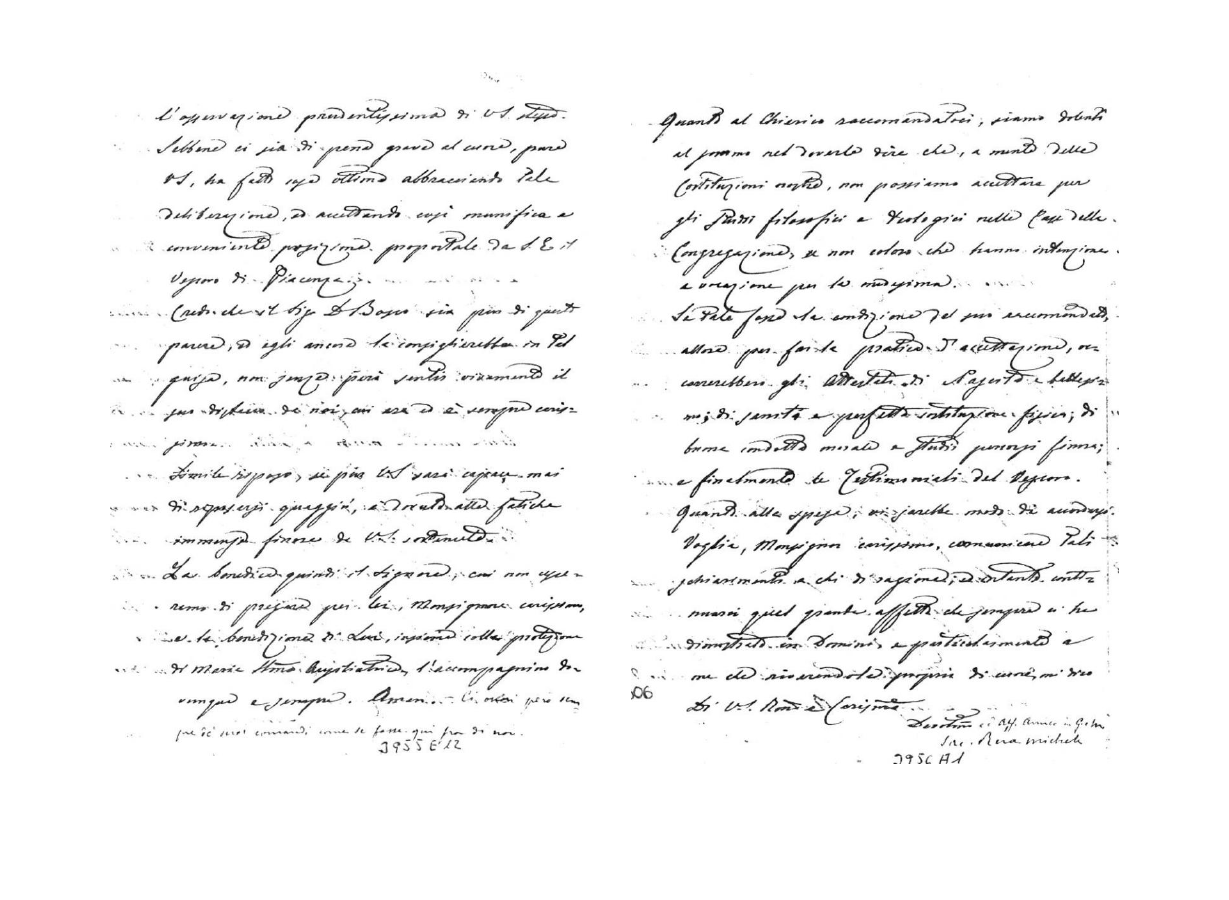 l'osservazione prudentissima di V.S. stessa.
Sebbene ci sia di pena grave al cuore, pure
V.S. ha fatto cosa ottima abbracciando tale
deliberazione, ed accettando così munifica e
conveniente posizione propostale da S. E. il
Vescovo di Piacenza.
Credo che il Sig. D. Bosco sia pur di questo
parere, ed egli ancora la consiglierebbe in tal
guisa, non senza però sentir vivamente il
suo distacco da noi, cui era ed è sempre caris-
simo.
Simile riposo, se pur V.S. sarà capace mai
di riposarsi quaggiù, è dovuto alle fatiche
immense finora da V.S. sostenute.
La benedica quindi il Signore, cui non cesse-
remo di pregare per lei, Monsignore carissimo,
e la benedizione di Lui, insieme colla protezione
di Maria SSma Ausiliatrice, l'accompagnino do-
vunque e sempre. Amen. Ci usi però sem
pre de' suoi comandi come se fosse qui fra di noi.
3955 E 12
Quanto al Chierico raccomandatoci, siamo dolenti
al sommo nel doverle dire che, a mente delle
Costituzioni nostre, non possiamo accettare per
gli studi filosofici e teologici nelle Case della
Congregazione, se non coloro che hanno intenzione
e vocazione per la medesima.
Se tale fosse la condizione del suo raccomandato,
allora per far la pratica d'accettazione, oc-
correrebbero gli attestati di Nascita e battesi-
mo; di sanità e perfetta costituzione fisica; di
buona condotta morale e studi percorsi finora;
e finalmente le Testimoniali del Vescovo.
Quanto alla spesa, vi sarebbe modo di accordarsi.
Voglia, Monsignor carissimo, comunicare tali
schiarimenti a chi di ragione; ed intanto conti-
nuarci quel grande affetto che sempre ci ha
dimostrato in Domino, e particolarmente a
me che riverendola proprio di cuore, mi dico
Di V.S. Rma e Carissima
06
Devotmo ed Aff. Amico in G. C.
Sac. Rua Michele
3956 A1